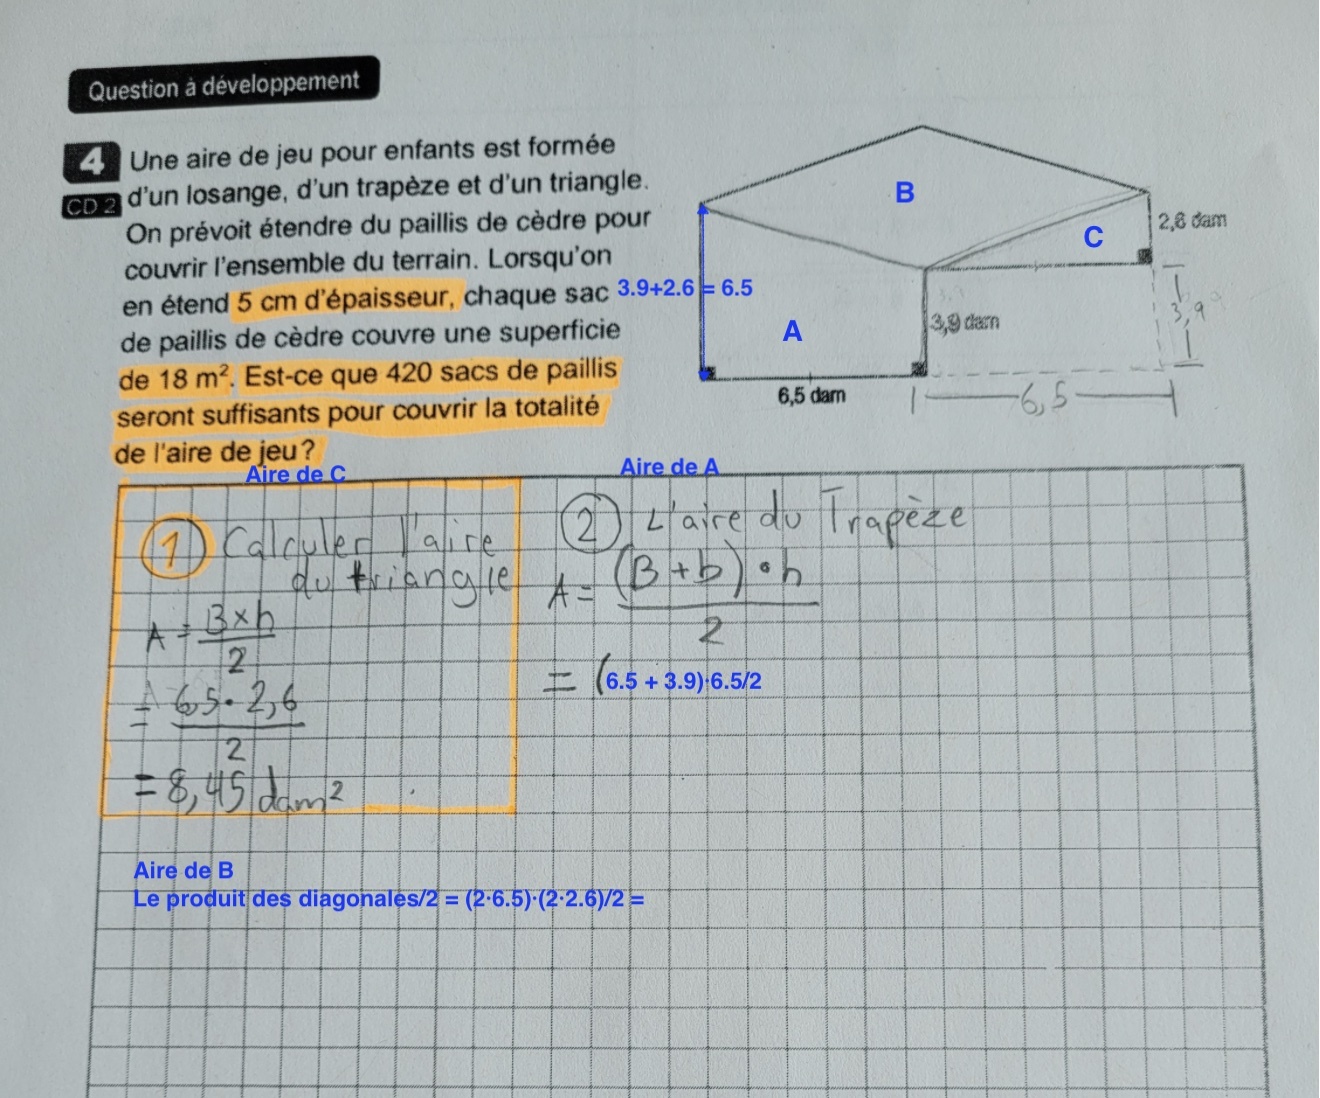 Question à développement
4 Une aire de jeu pour enfants est formée
CD 2 d'un losange, d'un trapèze et d'un triangle.
On prévoit étendre du paillis de cèdre pour
couvrir l'ensemble du terrain. Lorsqu'on
en étend 5 cm d'épaisseur, chaque sac
de paillis de cèdre couvre une superficie
de 18 m². Est-ce que 420 sacs de paillis
seront suffisants pour couvrir la totalité
de l'aire de jeu?
B
2,6 dam
C
3.9+2.6 = 6.5
3,9
A
3,9 dam
6,5 dam
6,5
Aire de C
1 Calculer l'aire
du triangle
A = B×h
2
= 6,5 • 2,6
2
= 8,45 dam²
Aire de A
2 L'aire du Trapèze
A = (B+b) • h
2
= (6.5 + 3.9)·6.5/2
Aire de B
Le produit des diagonales/2 = (2·6.5)·(2·2.6)/2 =